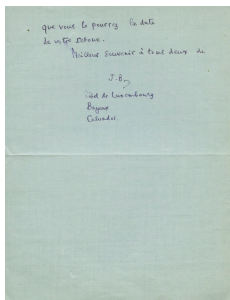 que vous le pourrez la date
de votre retour.
Meilleur souvenir à tous deux de
J.B.
Hôtel de Luxembourg
Bayeux
Calvados